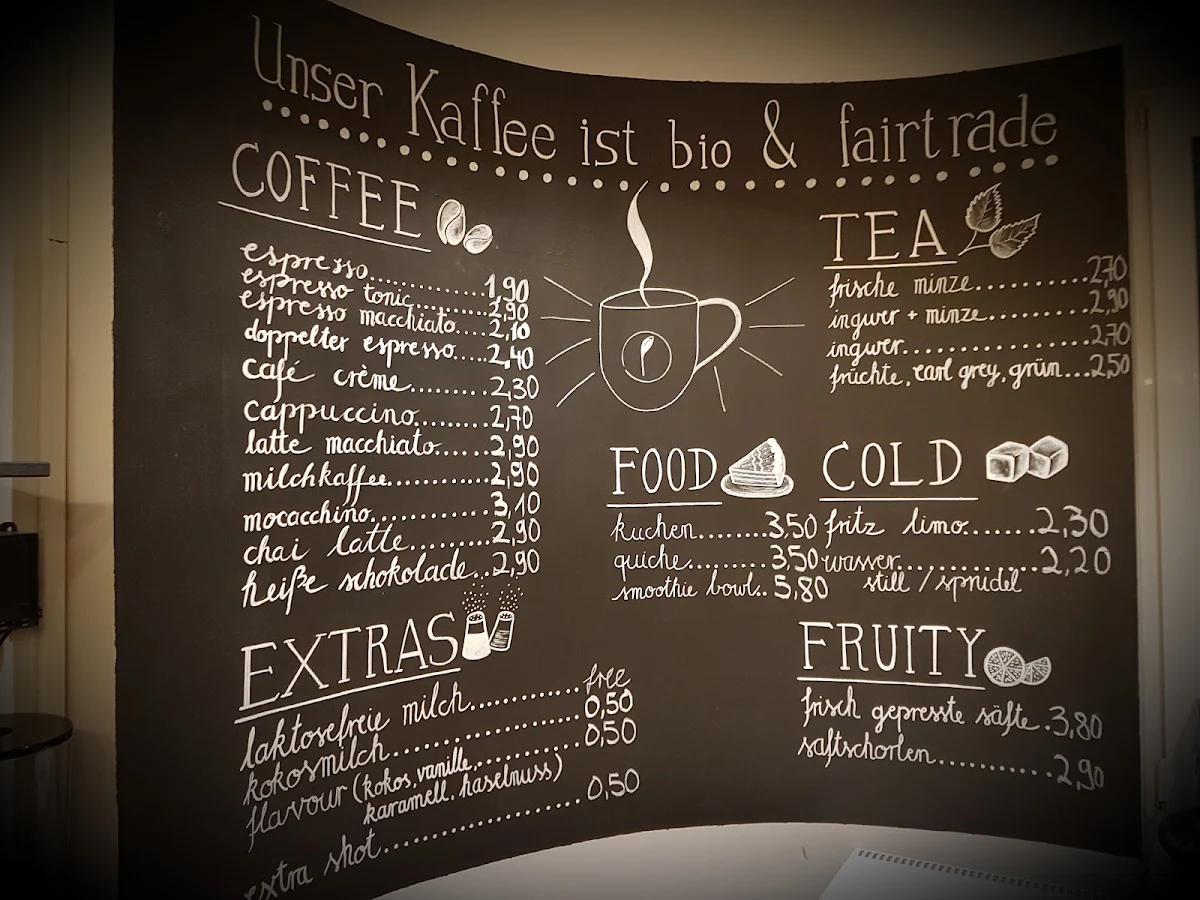 Unser Kaffee ist bio & fairtrade
COFFEE
espresso..............1,90
espresso tonic........2,90
espresso macchiato....2,10
doppelter espresso.....2,40
café crème.........2,30
cappuccino.........2,70
latte macchiato......2,90
milchkaffee............2,90
mocacchino............3,10
chai latte.........2,90
heiße schokolade..2,90
EXTRAS
laktosefreie milch...........free
kokosmilch....................0,50
flavour (kokos, vanille,..........0,50
karamell, haselnuss)
extra shot....................0,50
TEA
frische minze...........2,70
ingwer + minze..........2,90
ingwer..................2,70
früchte, earl grey, grün...2,50
FOOD
kuchen........3,50
quiche.........3,50
smoothie bowl..5,80
COLD
fritz limo.......2,30
wasser..............2,20
still / sprudel
FRUITY
frisch gepresste säfte.3,80
saftschorlen............2,90